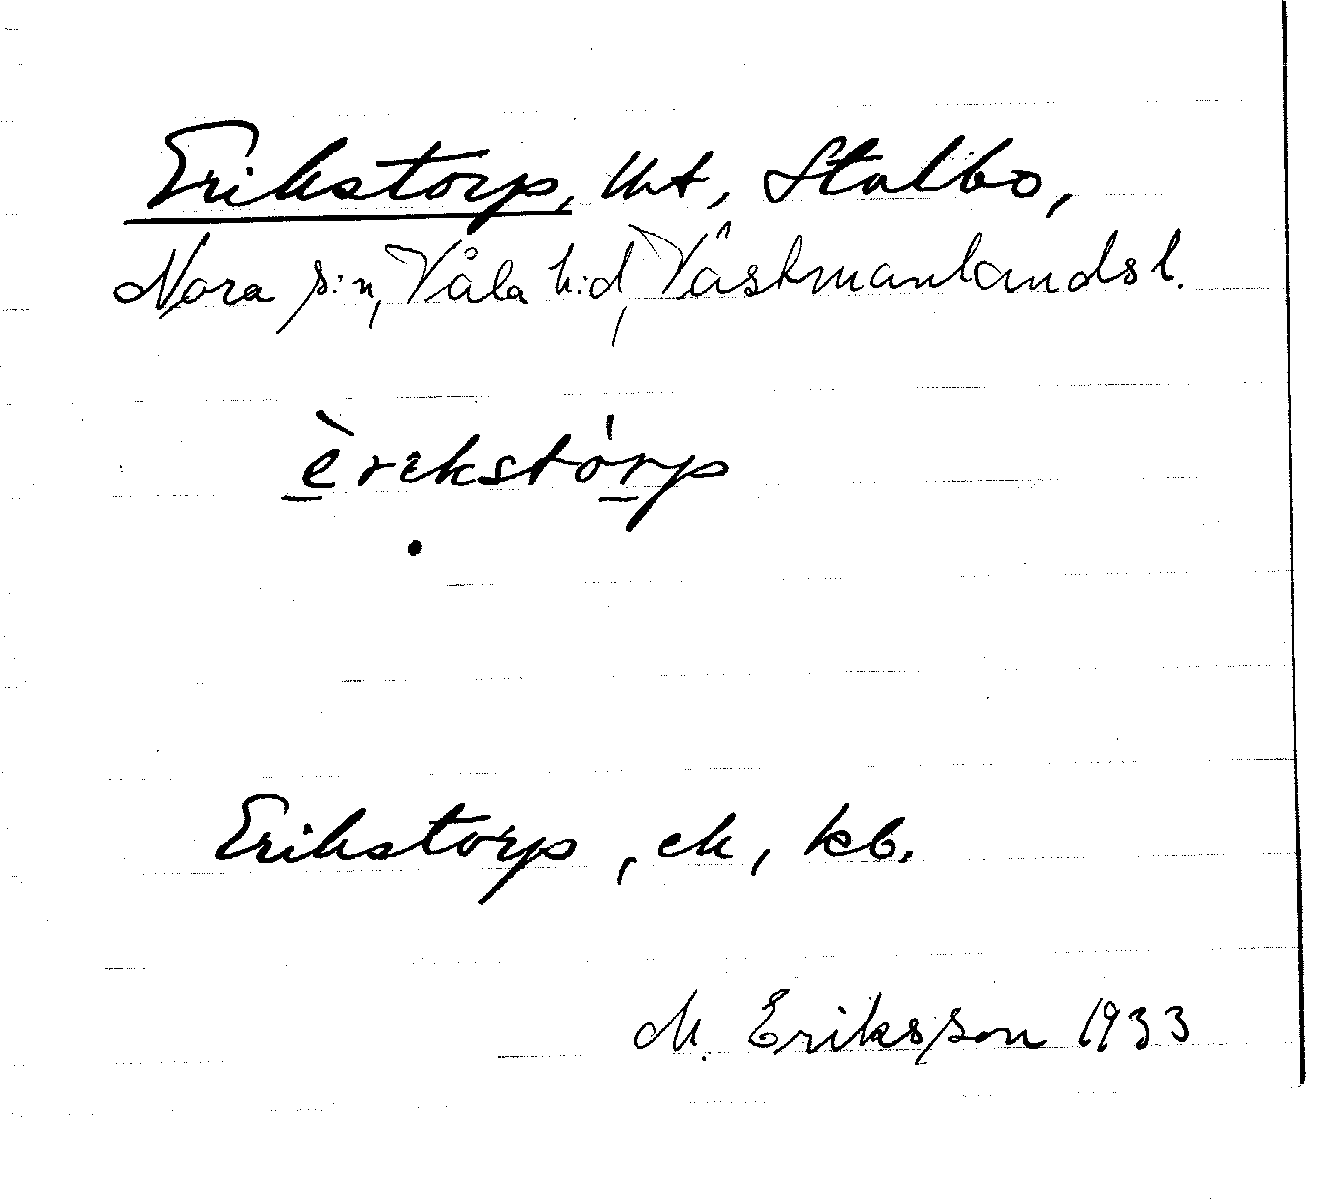 Erikstorp, tht, Stalbo,
Nora s:n, Våla h:d, Västmanlands l.
èrikstórp
Erikstorp, ek, kb.
M. Eriksson 1933